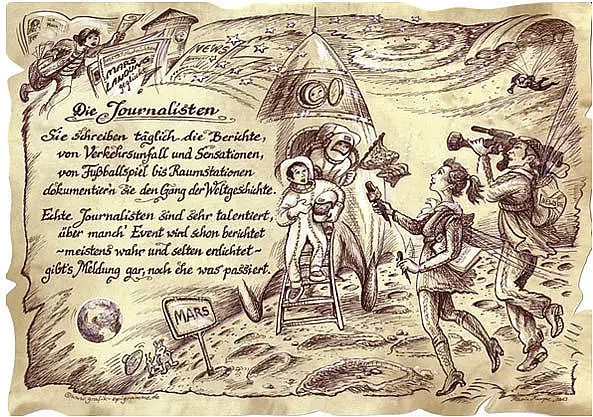 MARS
LANDUNG
geglückt
NEWS
Die Journalisten
Sie schreiben täglich die Berichte,
von Verkehrsunfall und Sensationen,
von Fußballspiel bis Raumstationen
dokumentier'n sie den Gang der Weltgeschichte.
Echte Journalisten sind sehr talentiert,
über manch' Event wird schon berichtet
~meistens wahr und selten erdichtet~
gibt's Meldung gar, noch ehe was passiert.
MARS